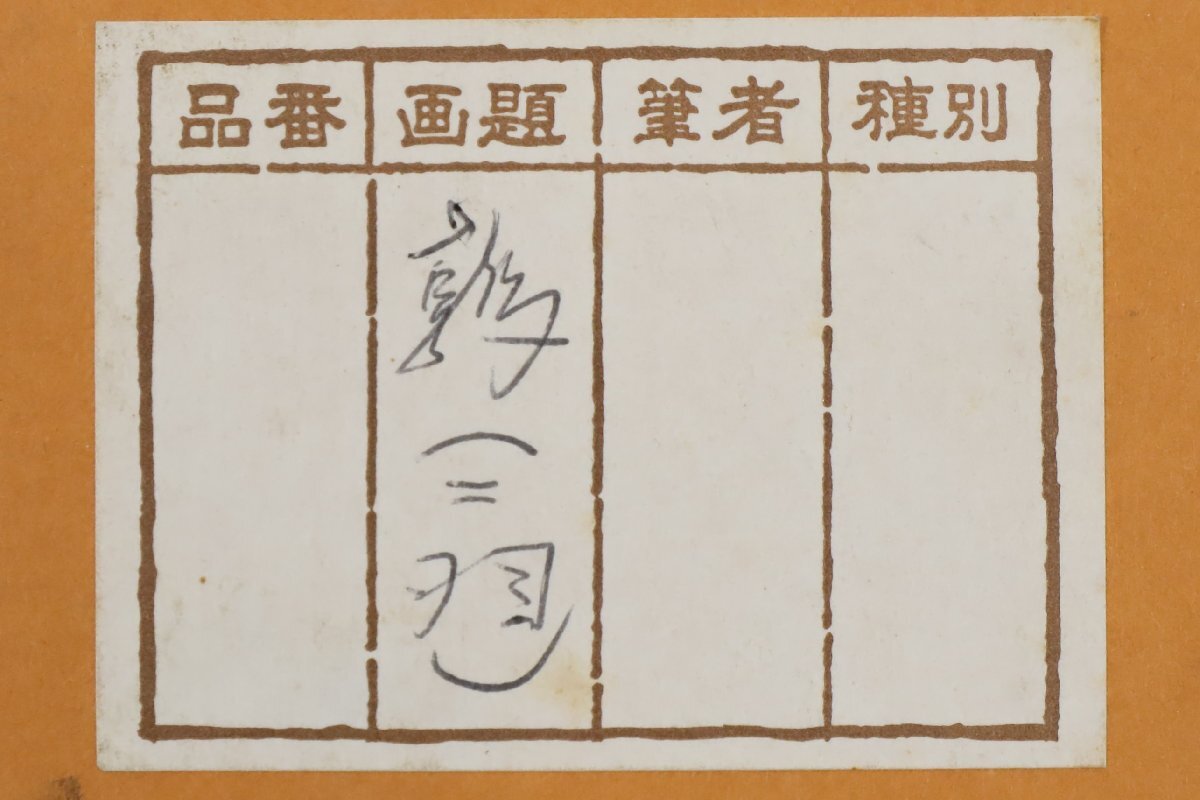 種別
筆者
画題
品番
鶉(二羽)